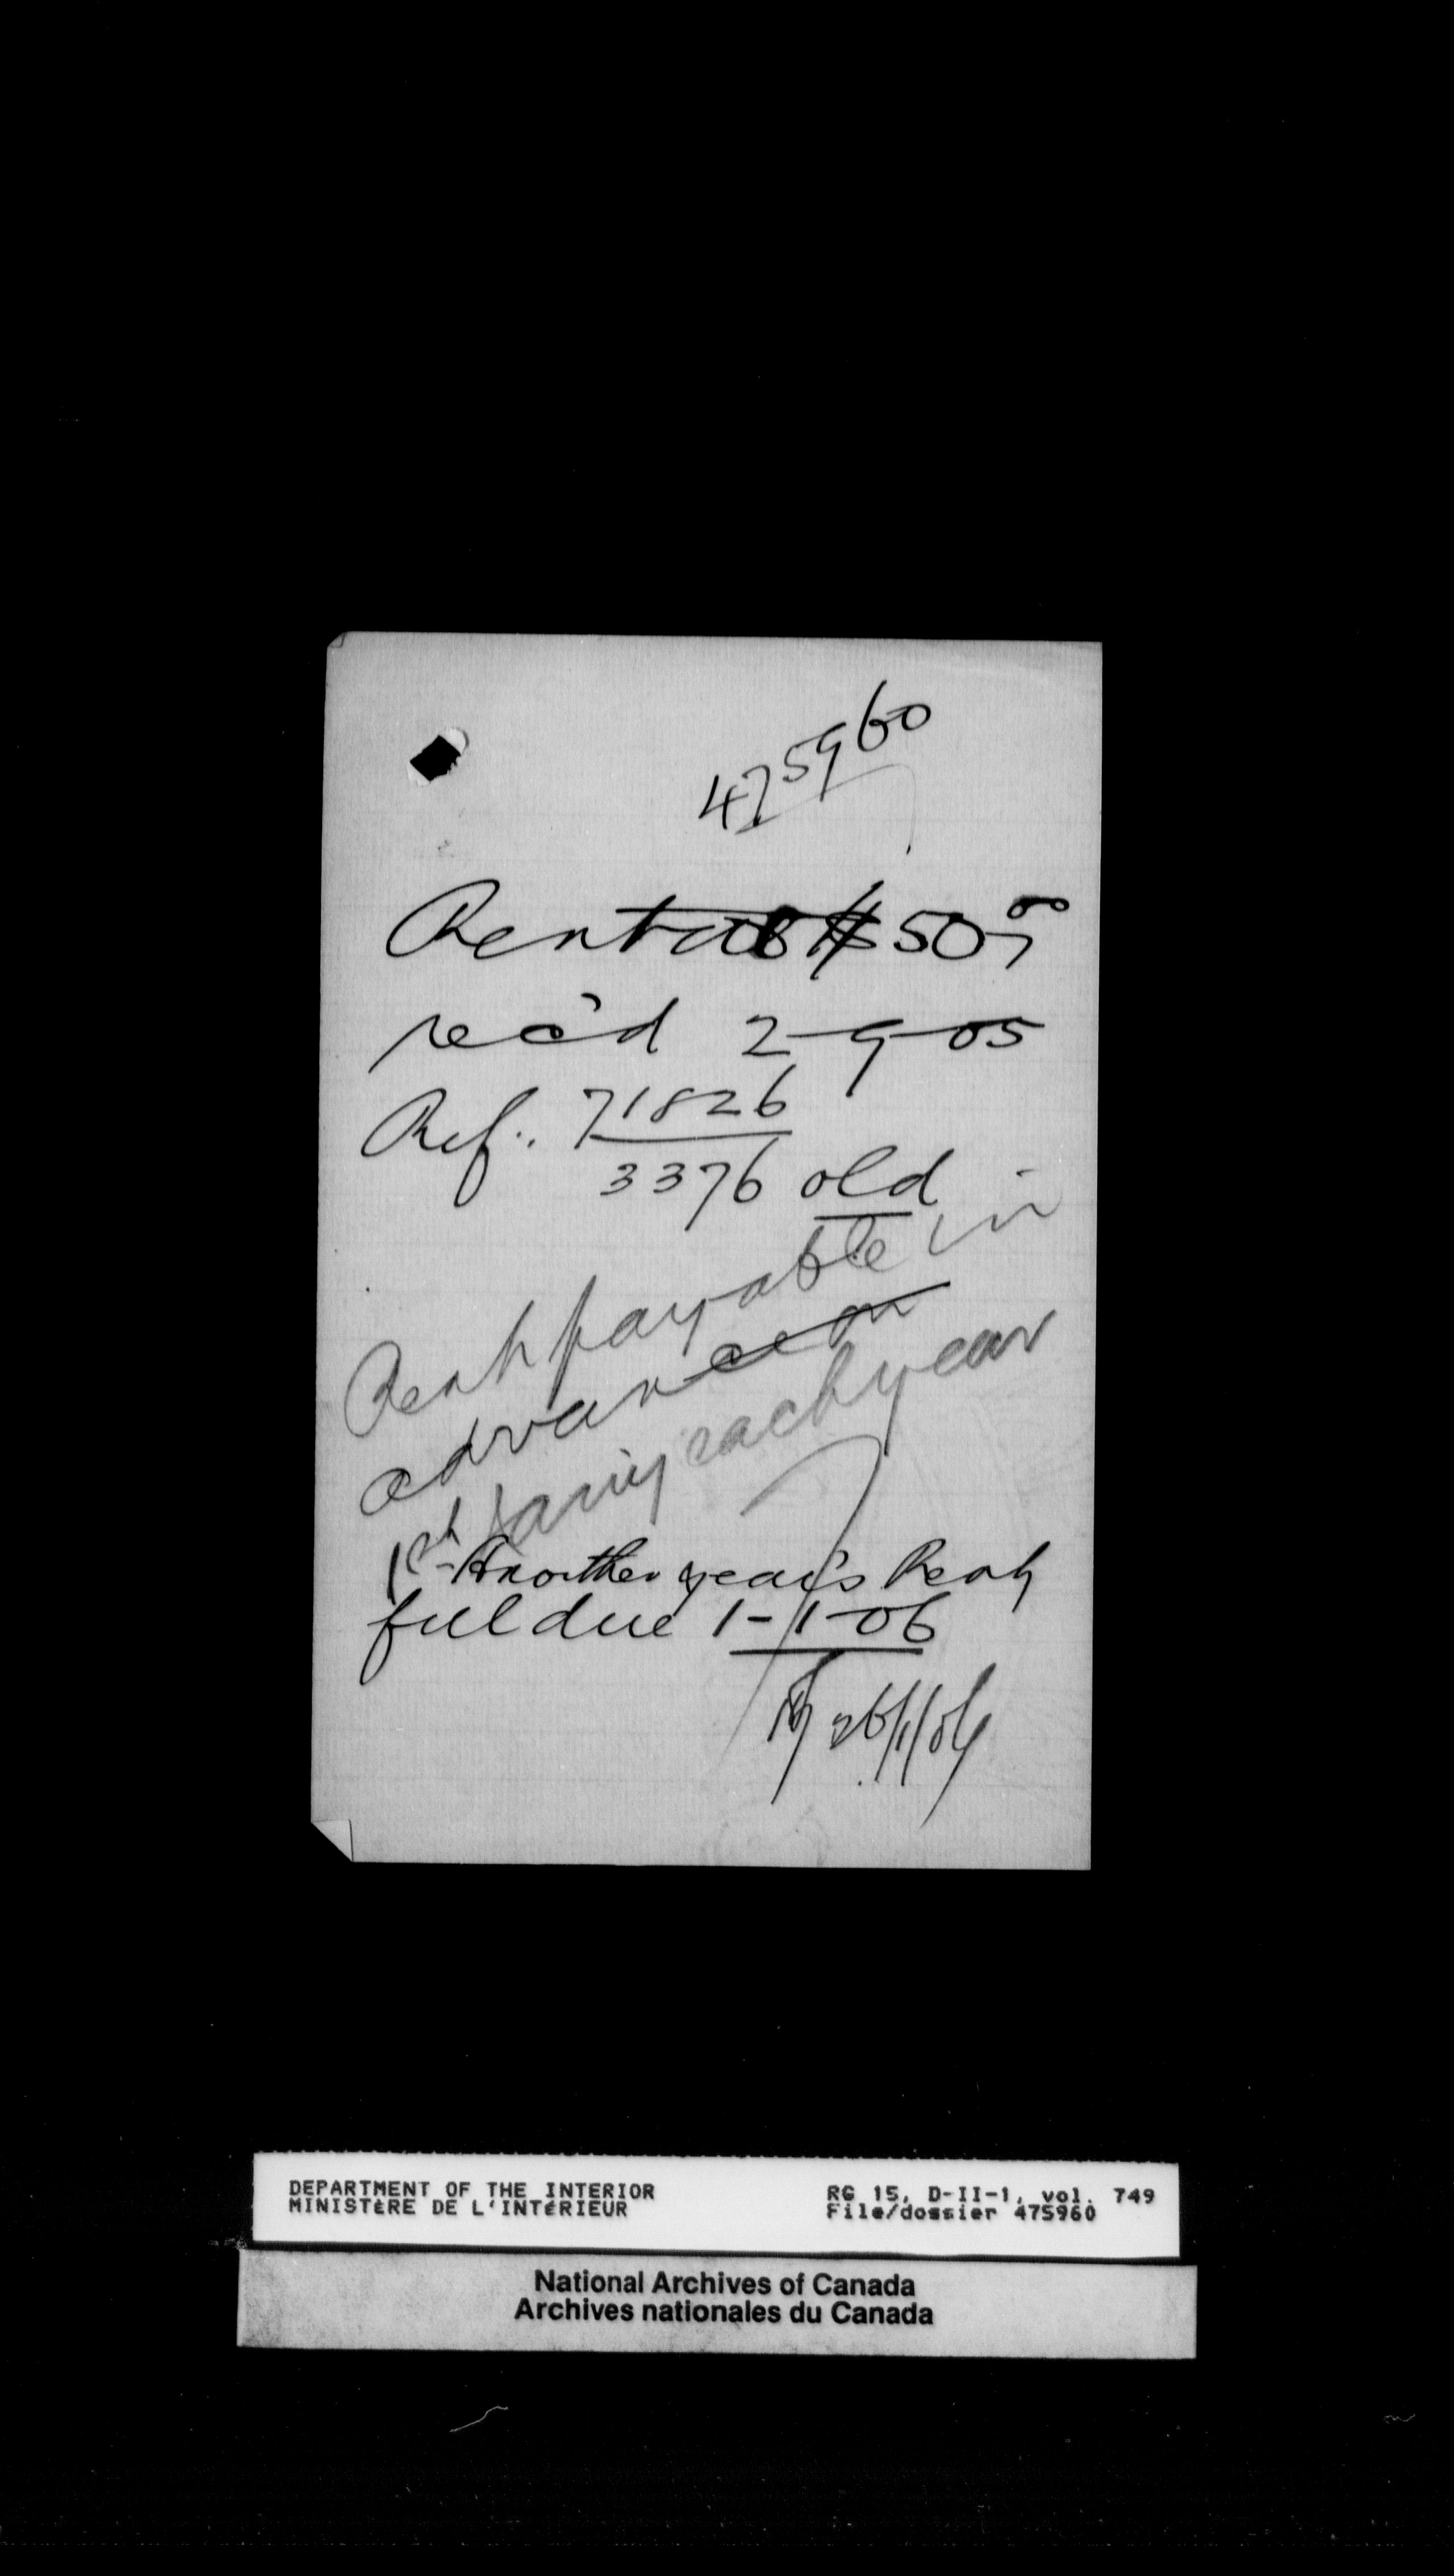 475960
Rental $50.00
rec'd 2-9-05
Ref. 71826
3376 old
Rent payable in
advance on
1st Jany each year
Another year's Rent
fell due 1-1-06
26/1/06
DEPARTMENT OF THE INTERIOR
MINISTÈRE DE L'INTÉRIEUR
RG 15, D-II-1, vol. 749
File/dossier 475960
National Archives of Canada
Archives nationales du Canada